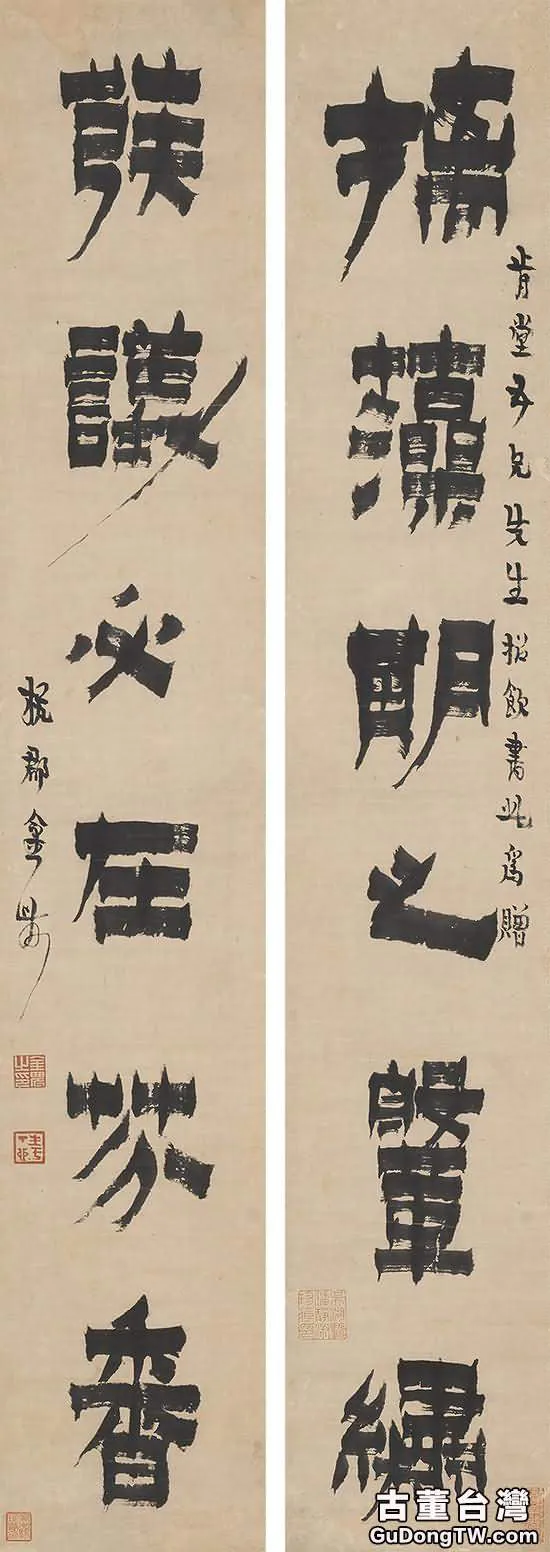 摛藻期之鞶繡
肯堂五兄先生招飲書此為贈
必在芬香
杭郡金農
古董台灣
GuDongTW.com